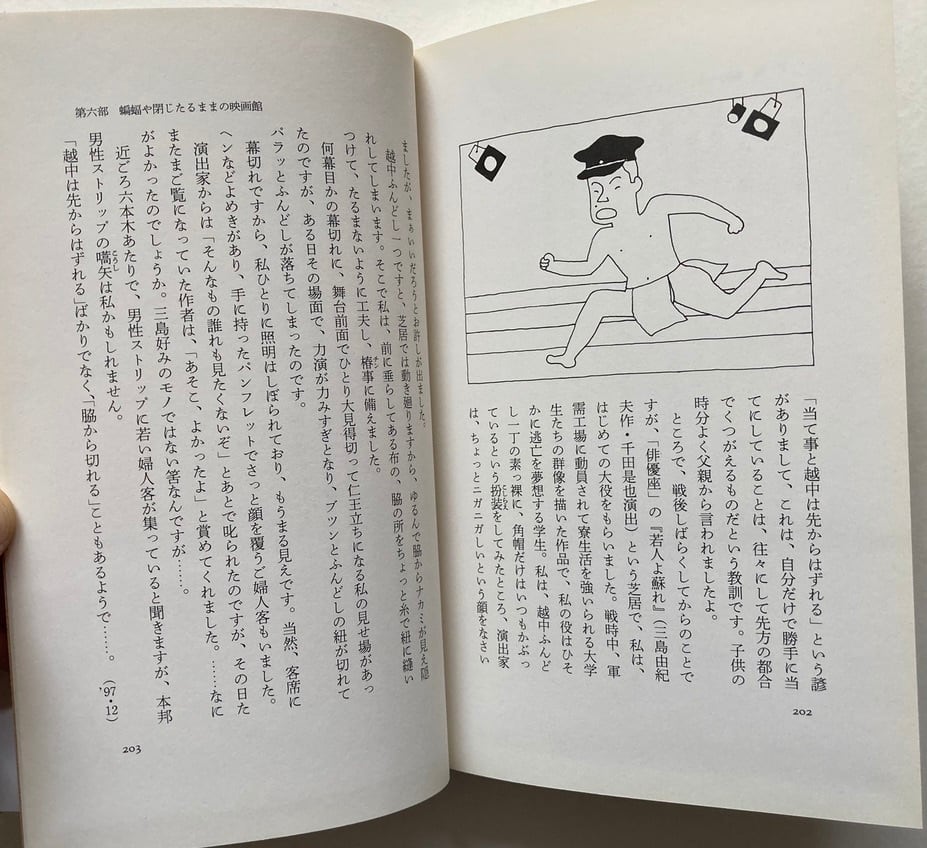 「当て事と越中は先からはずれる」という諺
がありまして、これは、自分だけで勝手に当
てにしていることは、往々にして先方の都合
でくつがえるものだという教訓です。子供の
時分よく父親から言われましたよ。
ところで、戦後しばらくしてからのことで
すが、「俳優座」の『若人よ蘇れ』(三島由紀
夫作・千田是也演出)という芝居で、私は、
はじめての大役をもらいました。戦時中、軍
需工場に動員されて寮生活を強いられる大学
生たちの群像を描いた作品で、私の役はひそ
かに逃亡を夢想する学生。私は、越中ふんど
し一丁の素っ裸に、角帽だけはいつもかぶっ
ているという扮装をしてみたところ、演出家
は、ちょっとニガニガしいという顔をなさい
202
第六部 蝙蝠や閉じたるままの映画館
ましたが、まぁいいだろうとお許しが出ました。
越中ふんどし一つですと、芝居では動き廻りますから、ゆるんで脇からナカミが見え隠
れしてしまいます。そこで私は、前に垂らしてある布の、脇の所をちょっと糸で紐に縫い
つけて、たるまないように工夫し、椿事に備えました。
何幕目かの幕切れに、舞台前面でひとり大見得切って仁王立ちになる私の見せ場があっ
たのですが、ある日その場面で、力演が力みすぎとなり、プツンとふんどしの紐が切れて
パラッとふんどしが落ちてしまったのです。
幕切れですから、私ひとりに照明はしぼられており、もうまる見えです。当然、客席に
ヘンなどよめきがあり、手に持ったパンフレットでさっと顔を覆うご婦人客もいました。
演出家からは「そんなもの誰れも見たくないぞ」とあとで叱られたのですが、その日た
またまご覧になっていた作者は、「あそこ、よかったよ」と賞めてくれました。……なに
がよかったのでしょうか。三島好みのモノではない筈なんですが……。
近ごろ六本木あたりで、男性ストリップに若い婦人客が集っていると聞きますが、本邦
男性ストリップの嚆矢は私かもしれません。
「越中は先からはずれる」ばかりでなく、「脇から切れる」こともあるようで……。
('97・12)
203